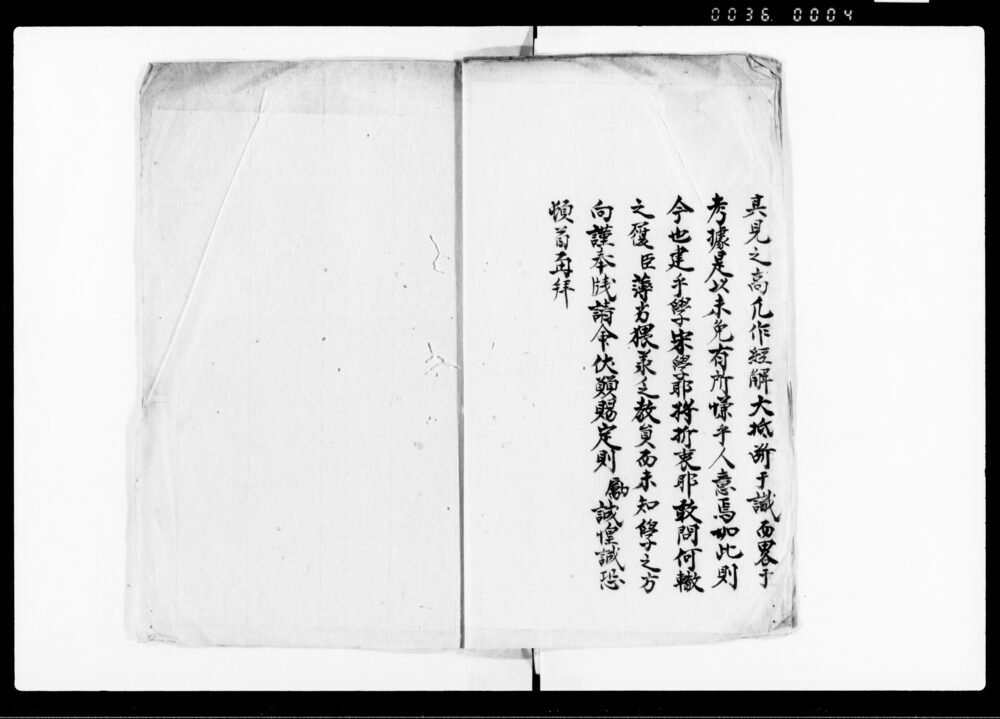 0036. 0004
其見之高凡作經解大抵断于識而畧于
考據是以未免有所慊乎人意焉如此則
今也建乎學宋學耶将折衷耶敢問何轍
之履臣薄劣猥承乏教員而未知學之方
向謹奉牋請命伏願賜定則勵誠惶誠恐
頓首再拜